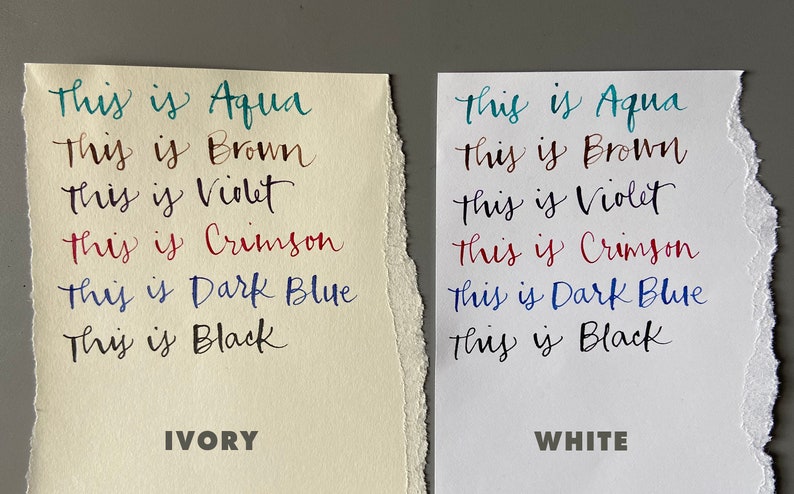 This is Aqua
This is Brown
This is Violet
This is Crimson
This is Dark Blue
This is Black
IVORY
This is Aqua
This is Brown
This is Violet
This is Crimson
This is Dark Blue
This is Black
WHITE